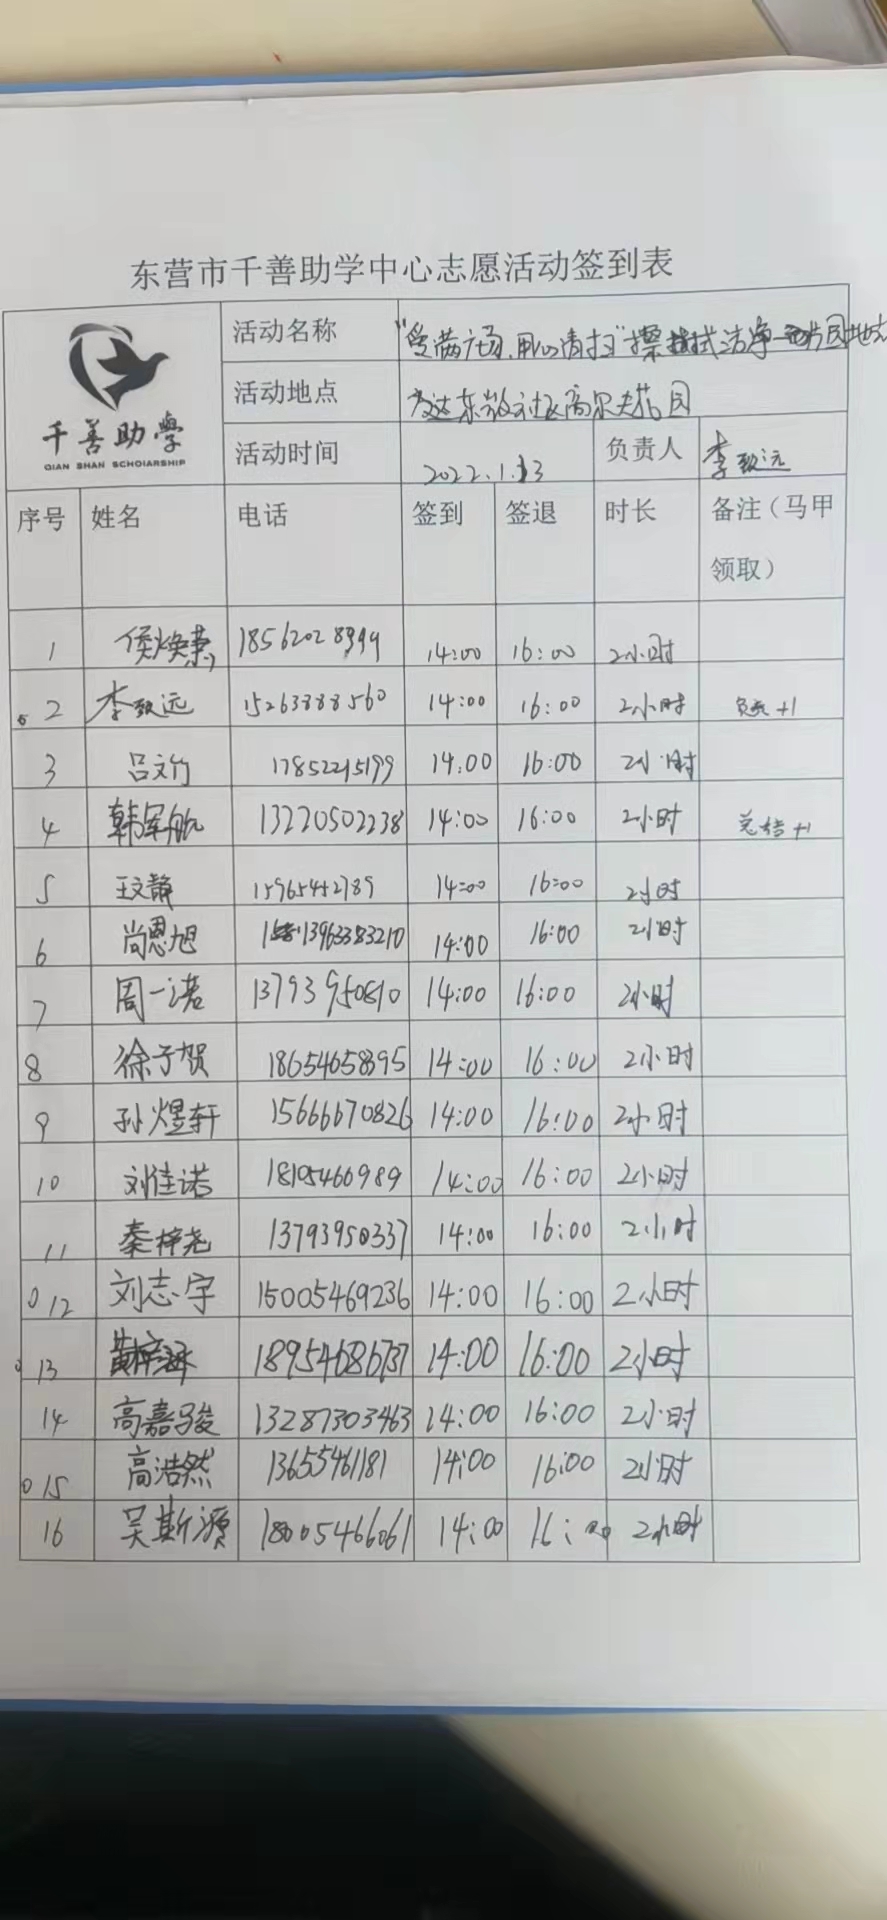 东营市千善助学中心志愿活动签到表
千善助學
QIAN SHAN SCHOIARSHIP
活动名称 "爱满广场,用心清扫"擦拭洁净一片园地
活动地点 东营社区高尔夫花园
活动时间 2022.1.13 负责人 李致远
序号 姓名 电话 签到 签退 时长 备注（马甲
领取）
1 侯焕荣 1856202 14:00 16:00 2小时
2 李致远 15263888560 14:00 16:00 2小时 负责+1
3 吕文竹 17852215199 14:00 16:00 2小时
4 韩军航 13220502238 14:00 16:00 2小时 总结+1
5 王文静 15965452789 14:00 16:00 2小时
6 尚恩旭 13963383210 14:00 16:00 2小时
7 周一诺 13793950810 14:00 16:00 2小时
8 徐子贺 18654658395 14:00 16:00 2小时
9 孙煜轩 15666670826 14:00 16:00 2小时
10 刘佳诺 18105466989 14:00 16:00 2小时
11 秦梓尧 13793950337 14:00 16:00 2小时
12 刘志宇 15005469236 14:00 16:00 2小时
13 黄梓涵 18954686737 14:00 16:00 2小时
14 高嘉骏 13287303463 14:00 16:00 2小时
15 高浩然 13655461181 14:00 16:00 2小时
16 吴斯源 18005466061 14:00 16:00 2小时